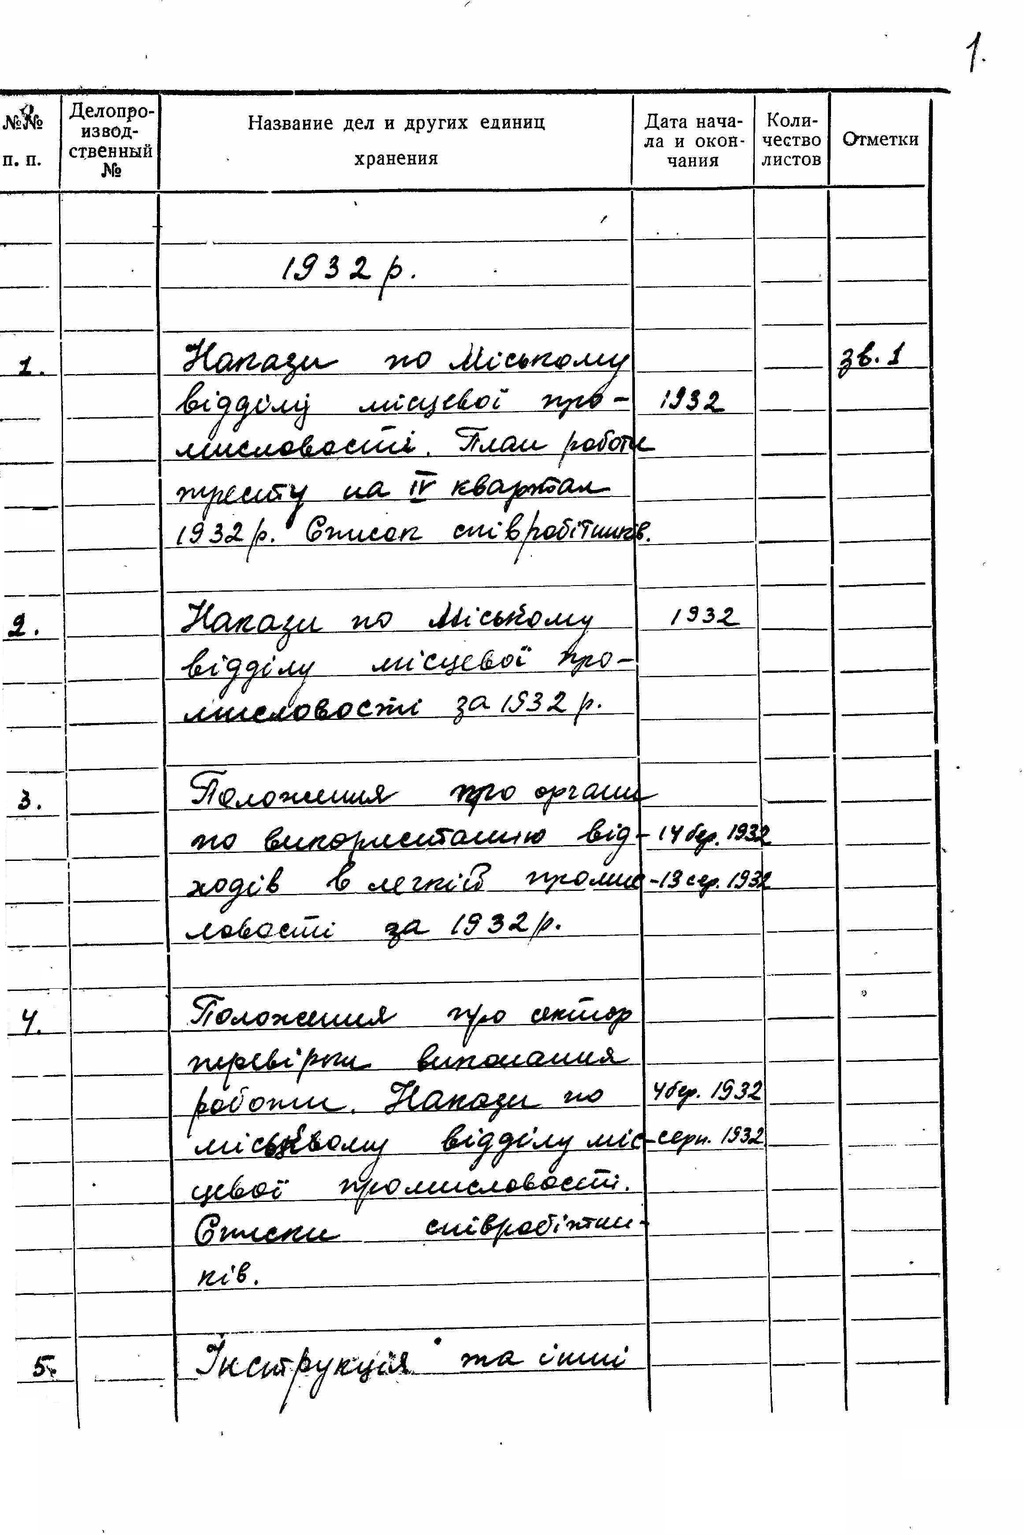 1.
№№ п. п.
Делопро-
извод-
ственный
№
Название дел и других единиц
хранения
Дата нача-
ла и окон-
чания
Коли-
чество
листов
Отметки
1932 р.
1. Накази по Міському зв. 1
відділу місцевої про- 1932
мисловості. План роботи
тресту на IV квартал
1932 р. Список співробітників.
2. Накази по Міському 1932
відділу місцевої про-
мисловості за 1932 р.
3. Положення про органи
по використанню від- 14 бер. 1932
ходів в легкій промис- 13 сер. 1932
ловості за 1932 р.
4. Положення про сектор
перевірки виконання
роботи. Накази по 4 бер. 1932
міському відділу міс- серп. 1932
цевої промисловості.
Списки співробітни-
ків.
5. Інструкція та інші